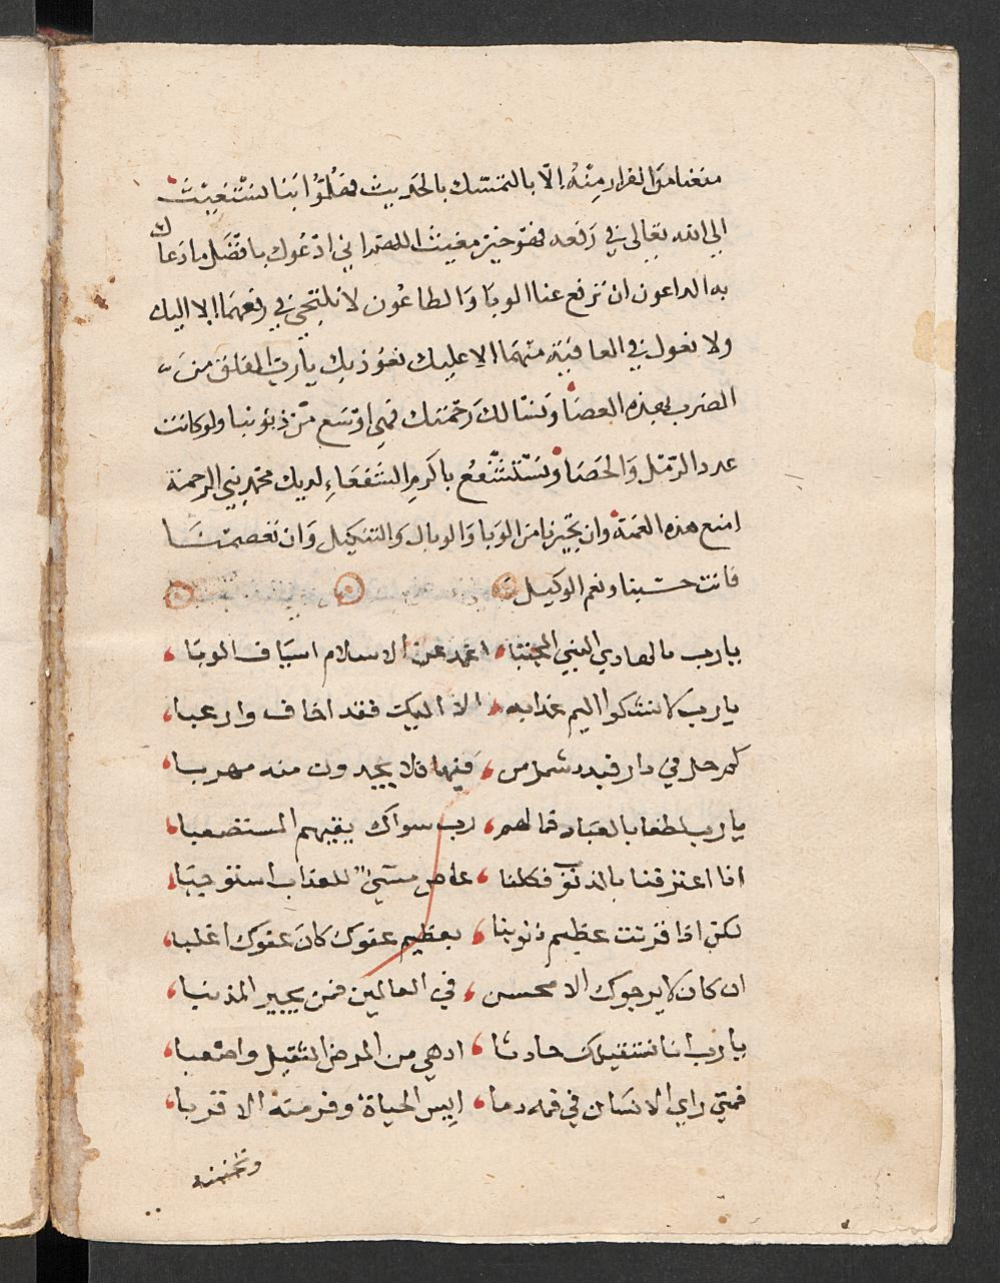 منعنا من الفرار منه إلا بالتمسك بالحديث فهلموا بنا نستغيث
الي الله تعالى في رفعه فهو خير مغيث اللهم اني ادعوك بافضل ما دعاك
به الداعون ان ترفع عنا الوبا والطاعون لا نلتجي في رفعهما الا اليك
ولا نعول في العافية منهما الا عليك نعوذ بك يا رب الفلق من
الضرب بهذه العصا ونسالك رحمتك فهي اوسع من ذنوبنا ولو كانت
عدد الرمل والحصا ونستشفع باكرم الشفعاء لديك محمد نبي الرحمة
امنع هذه الغمة وان تجيرنا من الوبا والوبال والتنكيل وان تعصمنا
فانت حسبنا ونعم الوكيل
يا رب بالهادي النبي المجتبا اغمد عن الاسلام اسياف الوبا
يا رب كا نشكوا اليم عذابه الا اليك فقد اخاف وارعبا
كم حل في دار فبدد شمل من فيها فلا يجدون منه مهربا
يا رب لطفا بالعباد فما لهم رب سواك يقيهم المستصعبا
اذا اعترفنا بالذنوب فكلنا عاص مسيء للعذاب استوجبا
لكن اذا قرنت عظيم ذنوبنا بعظيم عفوك كان عفوك اغلبا
ان كان لا يرجوك الا محسن في العالمين فمن يجير المذنبا
يا رب انا نستقيلك حادثا ادهي من المرض الثقيل واصعبا
فمتي راي الانسان في فمه دما ايس الحياة وفر منه الاقربا
وتجننه